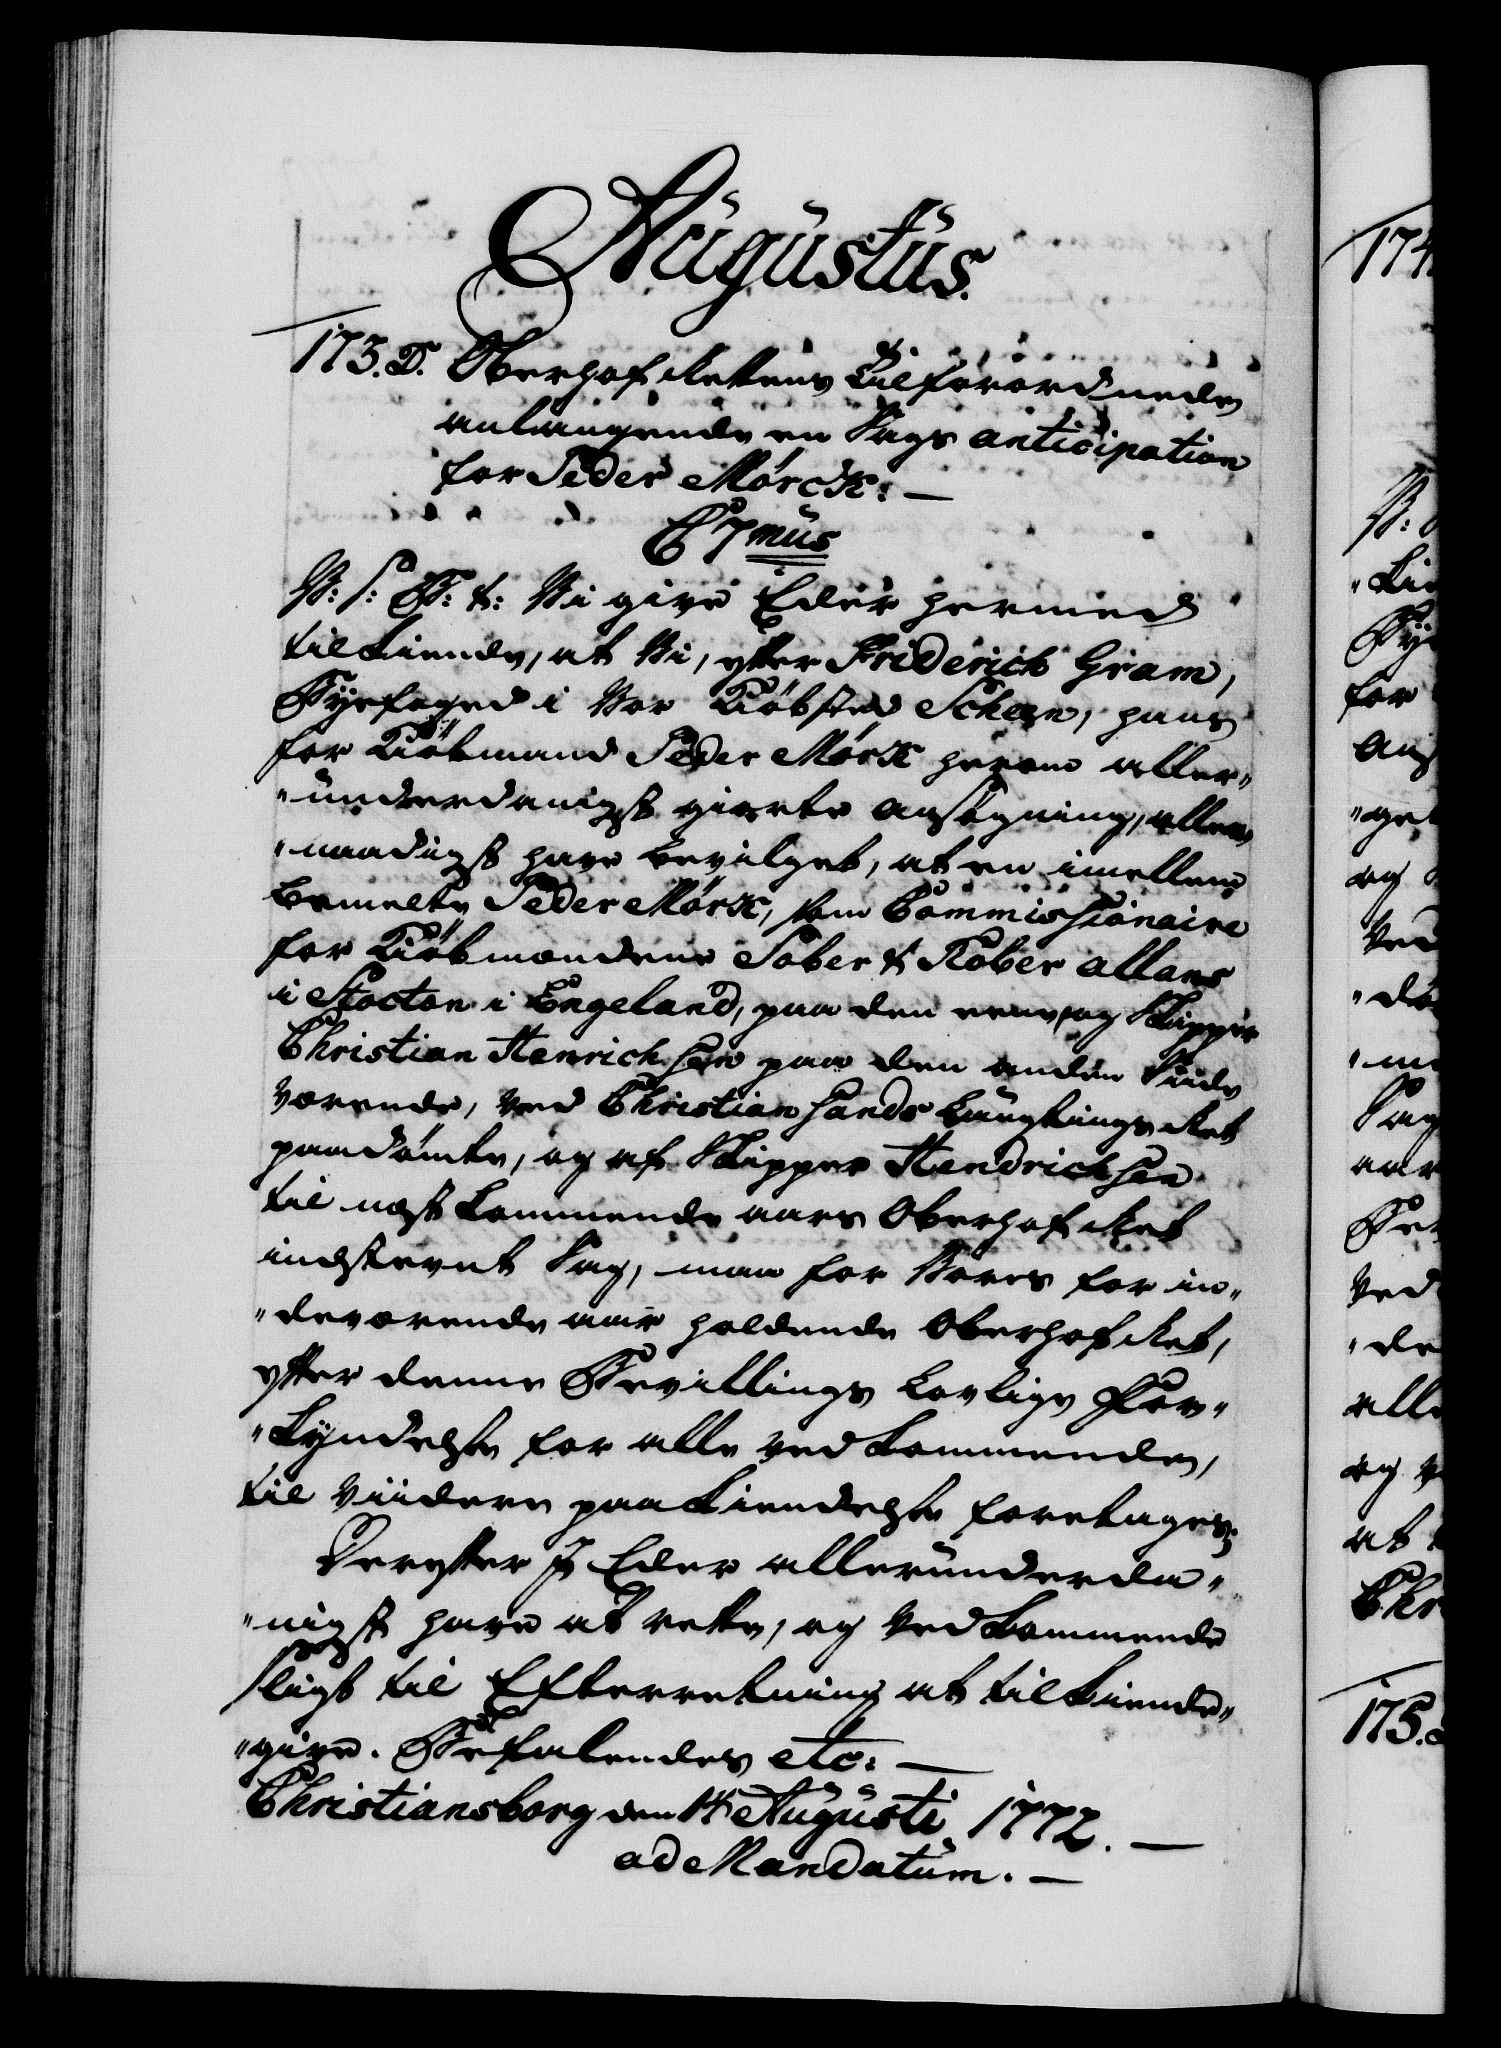 Augustus.
173. D. Oberhof Rettens Tilforordnede
anlangende en Sags anticipation
for Peder Mørck: —
C7mus
V: S: G: t: Vi give Eder hermed
tilkiende, at Vi, efter Friderich Gram,
Byefoged i Vor Kiøbsted Scheen, hans
for Kiøbmand Peder Mørk herom aller„
„underdanigst giorte Ansøgning, aller„
„naadigst have bevilget, at en imellem
bemelte Peder Mørk, som Commissionaire
for Kiøbmændene Sober & Rober Allans
i Stocton i Engeland, paa den eene, og Skipper
Christian Henrichsen paa den anden Siide
værende, ved Christiansands Laugtings Ret
paadømte, og af Skipper Hendrichsen
til næstkommende aars Oberhof Ret
indstevnt Sag, maa for Vores for in„
„deværende aar holdende Oberhof Ret,
efter denne Bevillings lovlige For„
„kyndelse for alle vedkommende,
til viidere paakiendelse foretages;
Derefter I Eder allerunderda„
„nigst have at rette, og Vedkommende
sligt til Efterretning at tilkiende„
„give. Befalendes etc: —
Christiansborg den 14 Augusti 1772. —
ad Mandatum. —
174
175.